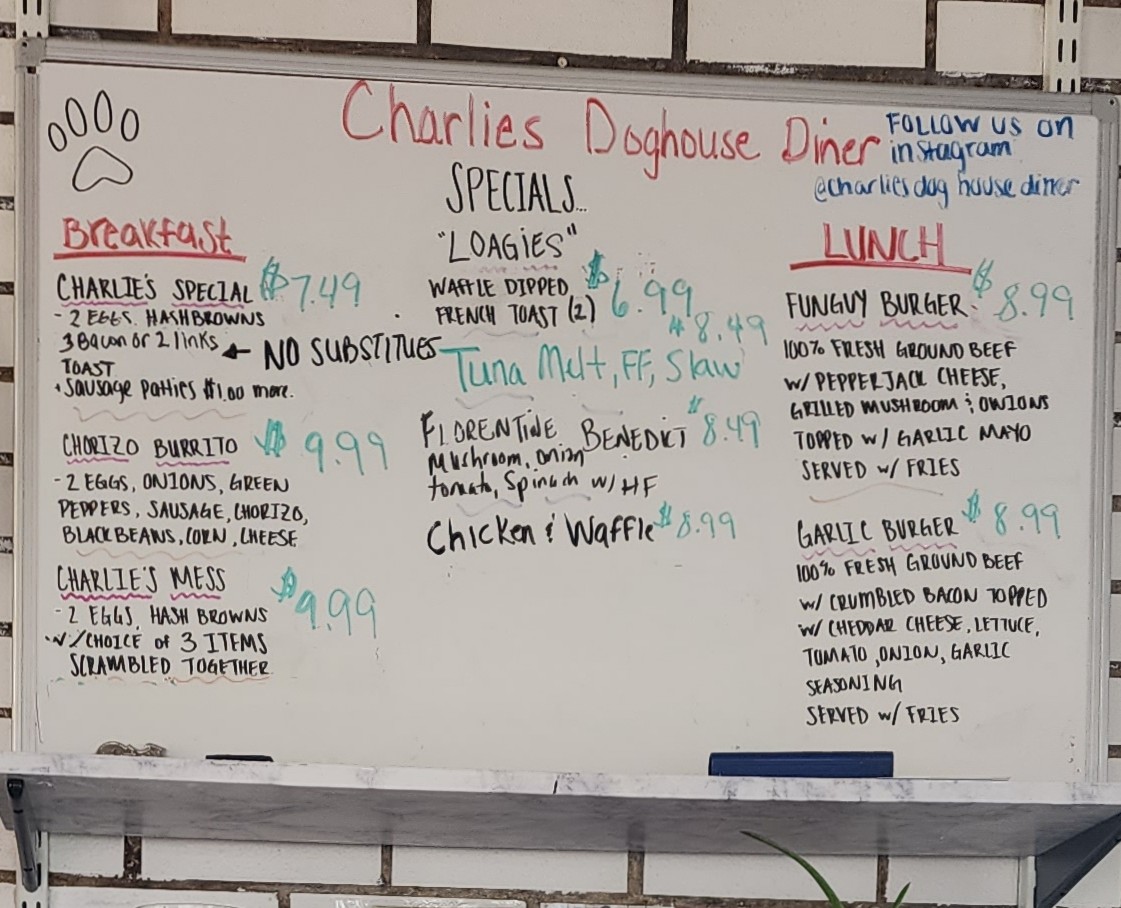 Charlies Doghouse Diner
FOLLOW us on
instagram
@charliesdoghousediner
Breakfast
CHARLIE'S SPECIAL $7.49
- 2 EGGS, HASHBROWNS
3 Bacon or 2 links ← NO SUBSTITUES
TOAST
+ Sausage patties $1.00 more.
CHORIZO BURRITO $9.99
- 2 EGGS, ONIONS, GREEN
PEPPERS, SAUSAGE, CHORIZO,
BLACK BEANS, CORN, CHEESE
CHARLIE'S MESS $9.99
- 2 EGGS, HASH BROWNS
w/CHOICE of 3 ITEMS
SCRAMBLED TOGETHER
SPECIALS...
"LOAGIES"
WAFFLE DIPPED $6.99
FRENCH TOAST (2)
$8.49
Tuna Melt, FF, Slaw
FLORENTINE BENEDICT $8.49
Mushroom, onion
tomato, Spinach w/ HF
Chicken & Waffle $8.99
LUNCH
FUNGUY BURGER $8.99
100% FRESH GROUND BEEF
w/ PEPPERJACK CHEESE,
GRILLED MUSHROOM & OWIONS
TOPPED w/ GARLIC MAYO
SERVED w/ FRIES
GARLIC BURGER $8.99
100% FRESH GROUND BEEF
w/ CRUMBLED BACON TOPPED
w/ CHEDDAR CHEESE, LETTUCE,
TOMATO, ONION, GARLIC
SEASONING
SERVED w/ FRIES